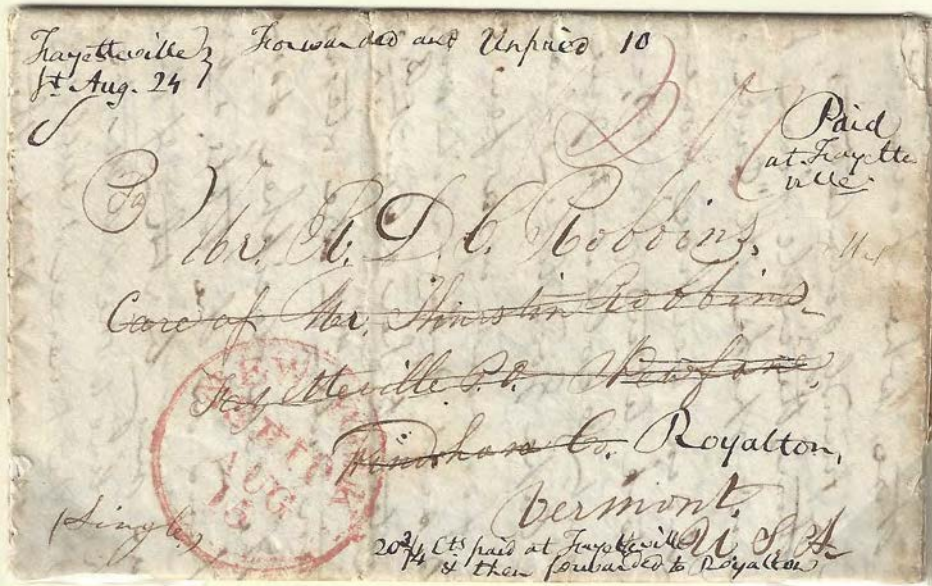 Fayetteville } Forwarded and Unpaid 10
Vt Aug. 24
Paid
at Fayette
ville.
To
Mr. R. D. C. Robbins,
Care of Mr. Robbins
Fayetteville P.O. Newfane,
Windham Co. Royalton,
Vermont.
U S A
NEW YORK
SHIP
AUG
15
(Single)
20 3/4 Cts paid at Fayetteville
& then forwarded to Royalton